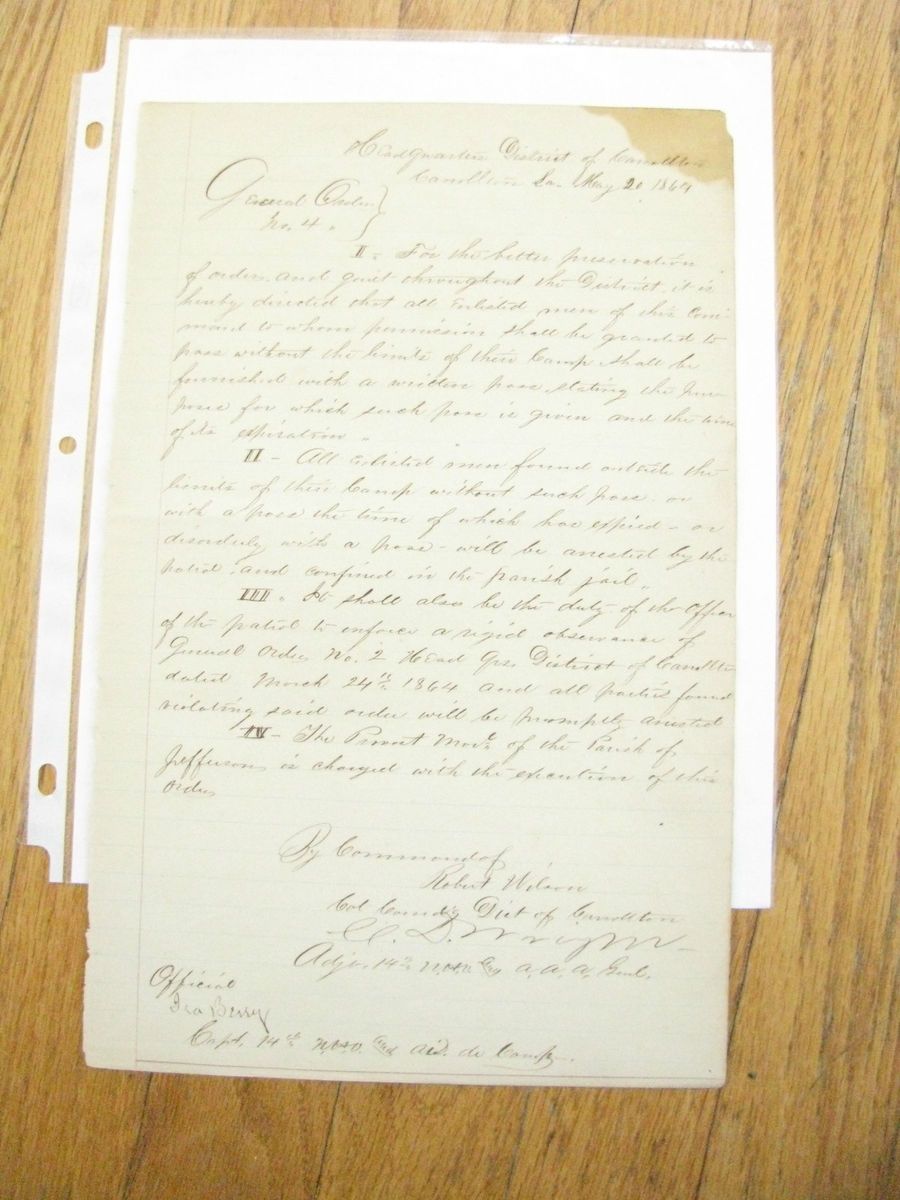 Head Quarters District of Carrollton
Carrollton La. May 20 1864
General Order
No. 4 "
I - For the better preservation
of order, and quiet throughout the District, it is
hereby directed that all Enlisted men of this Com-
mand to whom permission shall be granted to
pass without the limits of their Camp shall be
furnished with a written pass, stating the pur-
pose for which such pass is given and the time
of its expiration "
II - All enlisted men found outside the
limits of their Camp without such pass - or
with a pass the time of which has expired - or
disorderly with a pass - will be arrested by the
patrol, and confined in the parish jail "
III " It shall also be the duty of the Officer
of the patrol to enforce a rigid observance of
General Order No. 2 Head Qrs. District of Carrollton
dated March 24th 1864 and all parties found
violating said order will be promptly arrested
IV - The Provost Marl. of the Parish of
Jefferson is charged with the execution of this
order
By Command of
Robert Wilson
Col Comdg Dist of Carrollton
Adjt. 14th Cav A. A. A. Genl.
Official
Ira Berry
Capt. 14th Cav Aid. de Camp.